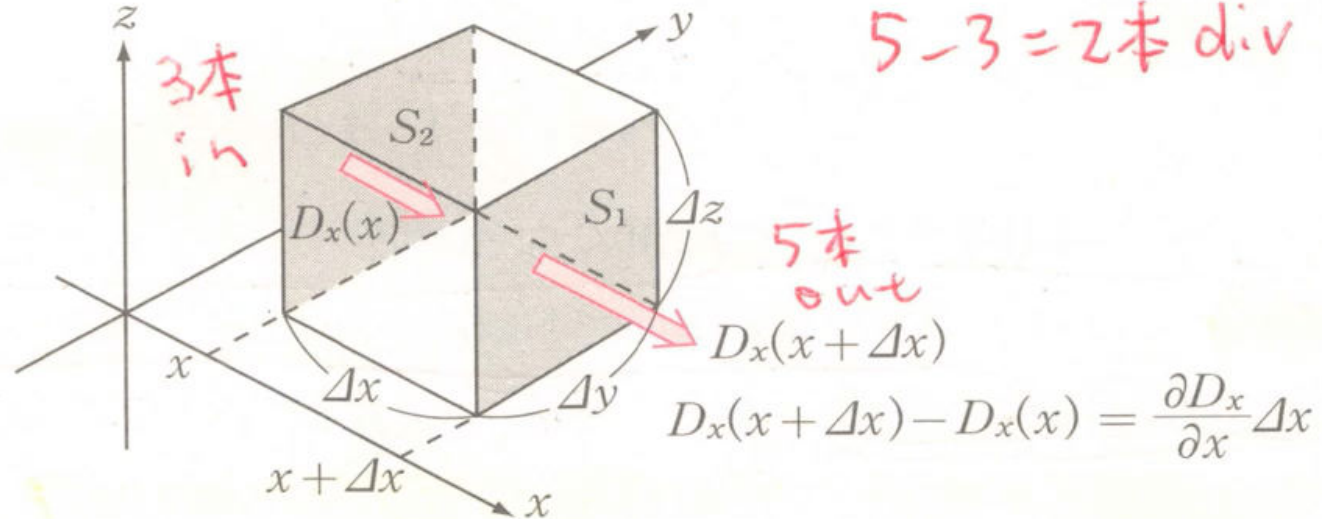 z
y
5-3=2本 div
3本
in
S₂
Dₓ(x)
S₁
Δz
5本
out
Dₓ(x+Δx)
x
Δx
Δy
Dₓ(x+Δx)−Dₓ(x) = ∂Dₓ/∂x Δx
x+Δx
x